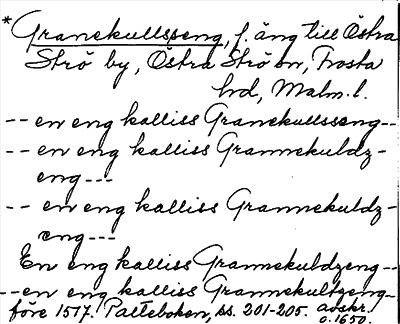 * Granekullsseng, f. äng till Östra
Strö by, Östra Strö sn, Frosta
hd, Malm. l.
-- en eng kalliss Granekullsseng --
-- en eng kalliss Grannekuldz-
eng ---
-- en eng kalliss Grannekuldz-
eng ---
En eng kalliss Grannekuldzeng --
-- en eng kalliss Granekultseng --
före 1517. Palteboken, ss. 201-205. avskr.
o. 1650.